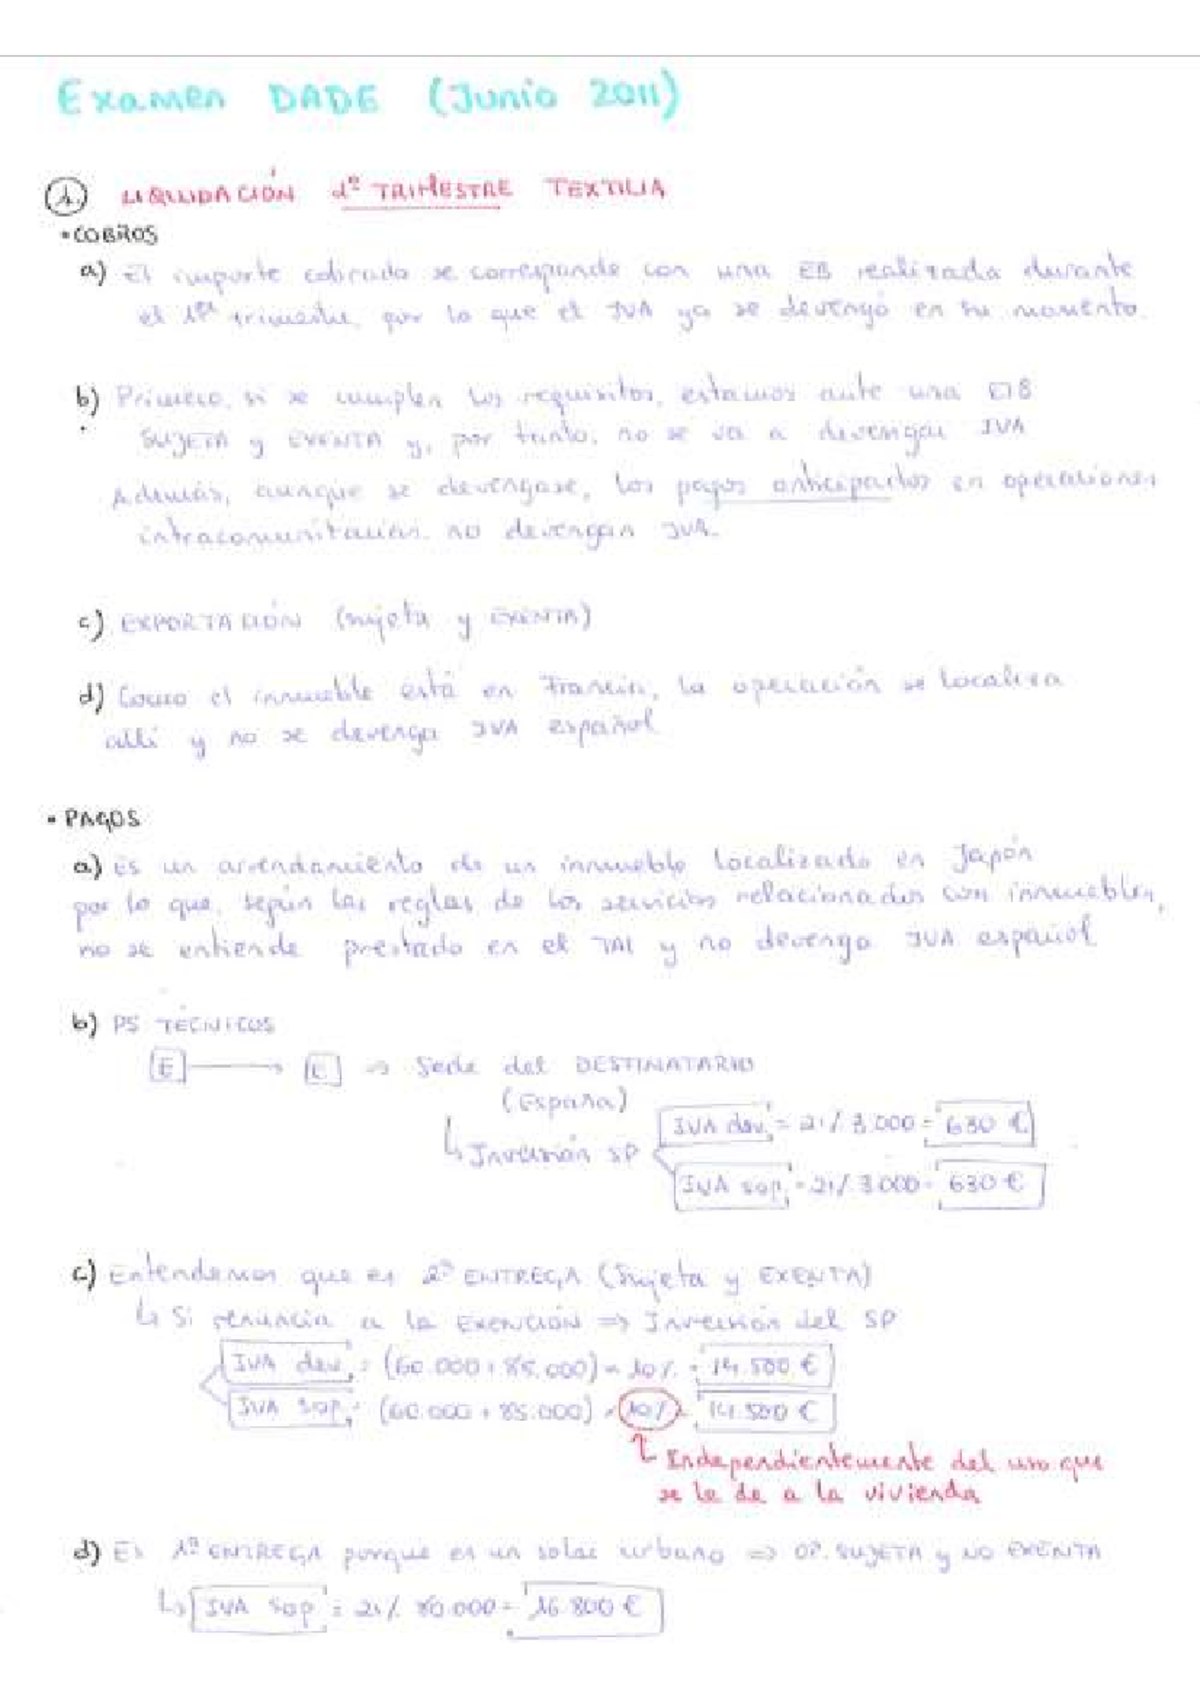 Examen DADE (Junio 2011)
1. LIQUIDACIÓN 2º TRIMESTRE TEXTILIA
• COBROS
a) El importe cobrado se corresponde con una EB realizada durante
el 1er trimestre, por lo que el IVA ya se devengó en su momento.
b) Primero, si se cumplen los requisitos, estamos ante una EIB
SUJETA y EXENTA y, por tanto, no se va a devengar IVA
Además, aunque se devengase, los pagos anticipados en operaciones
intracomunitarias no devengan IVA.
c) EXPORTACIÓN (sujeta y EXENTA)
d) Como el inmueble está en Francia, la operación se localiza
allí y no se devenga IVA español
• PAGOS
a) Es un arrendamiento de un inmueble localizado en Japón
por lo que, según las reglas de los servicios relacionados con inmuebles,
no se entiende prestado en el TAI y no devenga IVA español
b) PS TÉCNICOS
E → E ⇒ Sede del DESTINATARIO
(España)
↳ Inversión SP
IVA dev. = 21% 3.000 = 630 €
IVA sop. = 21% 3.000 = 630 €
c) Entendemos que es 2ª ENTREGA (Sujeta y EXENTA)
↳ Si renuncia a la EXENCIÓN ⇒ Inversión del SP
IVA dev. = (60.000 + 85.000) × 10% = 14.500 €
IVA sop. = (60.000 + 85.000) × 10% = 14.500 €
Independientemente del uso que
se le dé a la vivienda
d) Es 1ª ENTREGA porque es un solar urbano ⇒ OP. SUJETA y NO EXENTA
↳ IVA sop = 21% 80.000 = 16.800 €